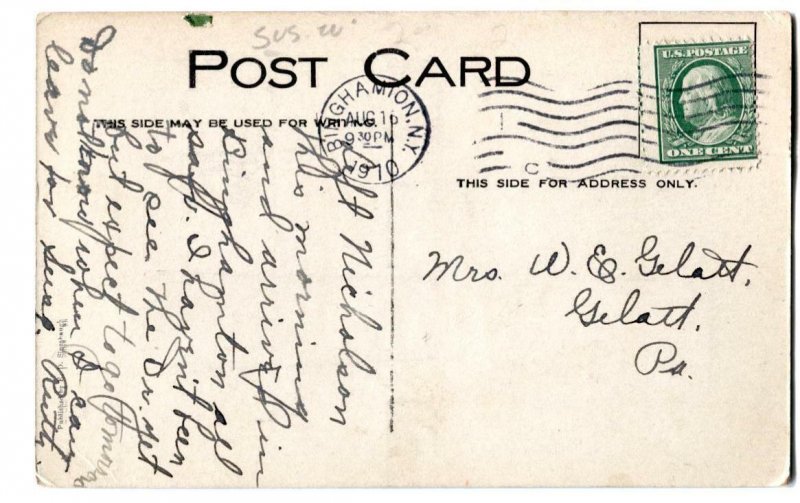 Sus. co.
POST CARD
THIS SIDE MAY BE USED FOR WRITING.
THIS SIDE FOR ADDRESS ONLY.
BINGHAMTON, N.Y.
AUG 16
9 30 PM
1910
U.S. POSTAGE
ONE CENT
Left Nicholson
this morning
and arrived in
Binghamton all
safe. I haven't been
to see the Dr. yet
but expect to go tomorrow
Do not know when I can
leave for
Ruth
Mrs. W. E. Gelatt,
Gelatt,
Pa.